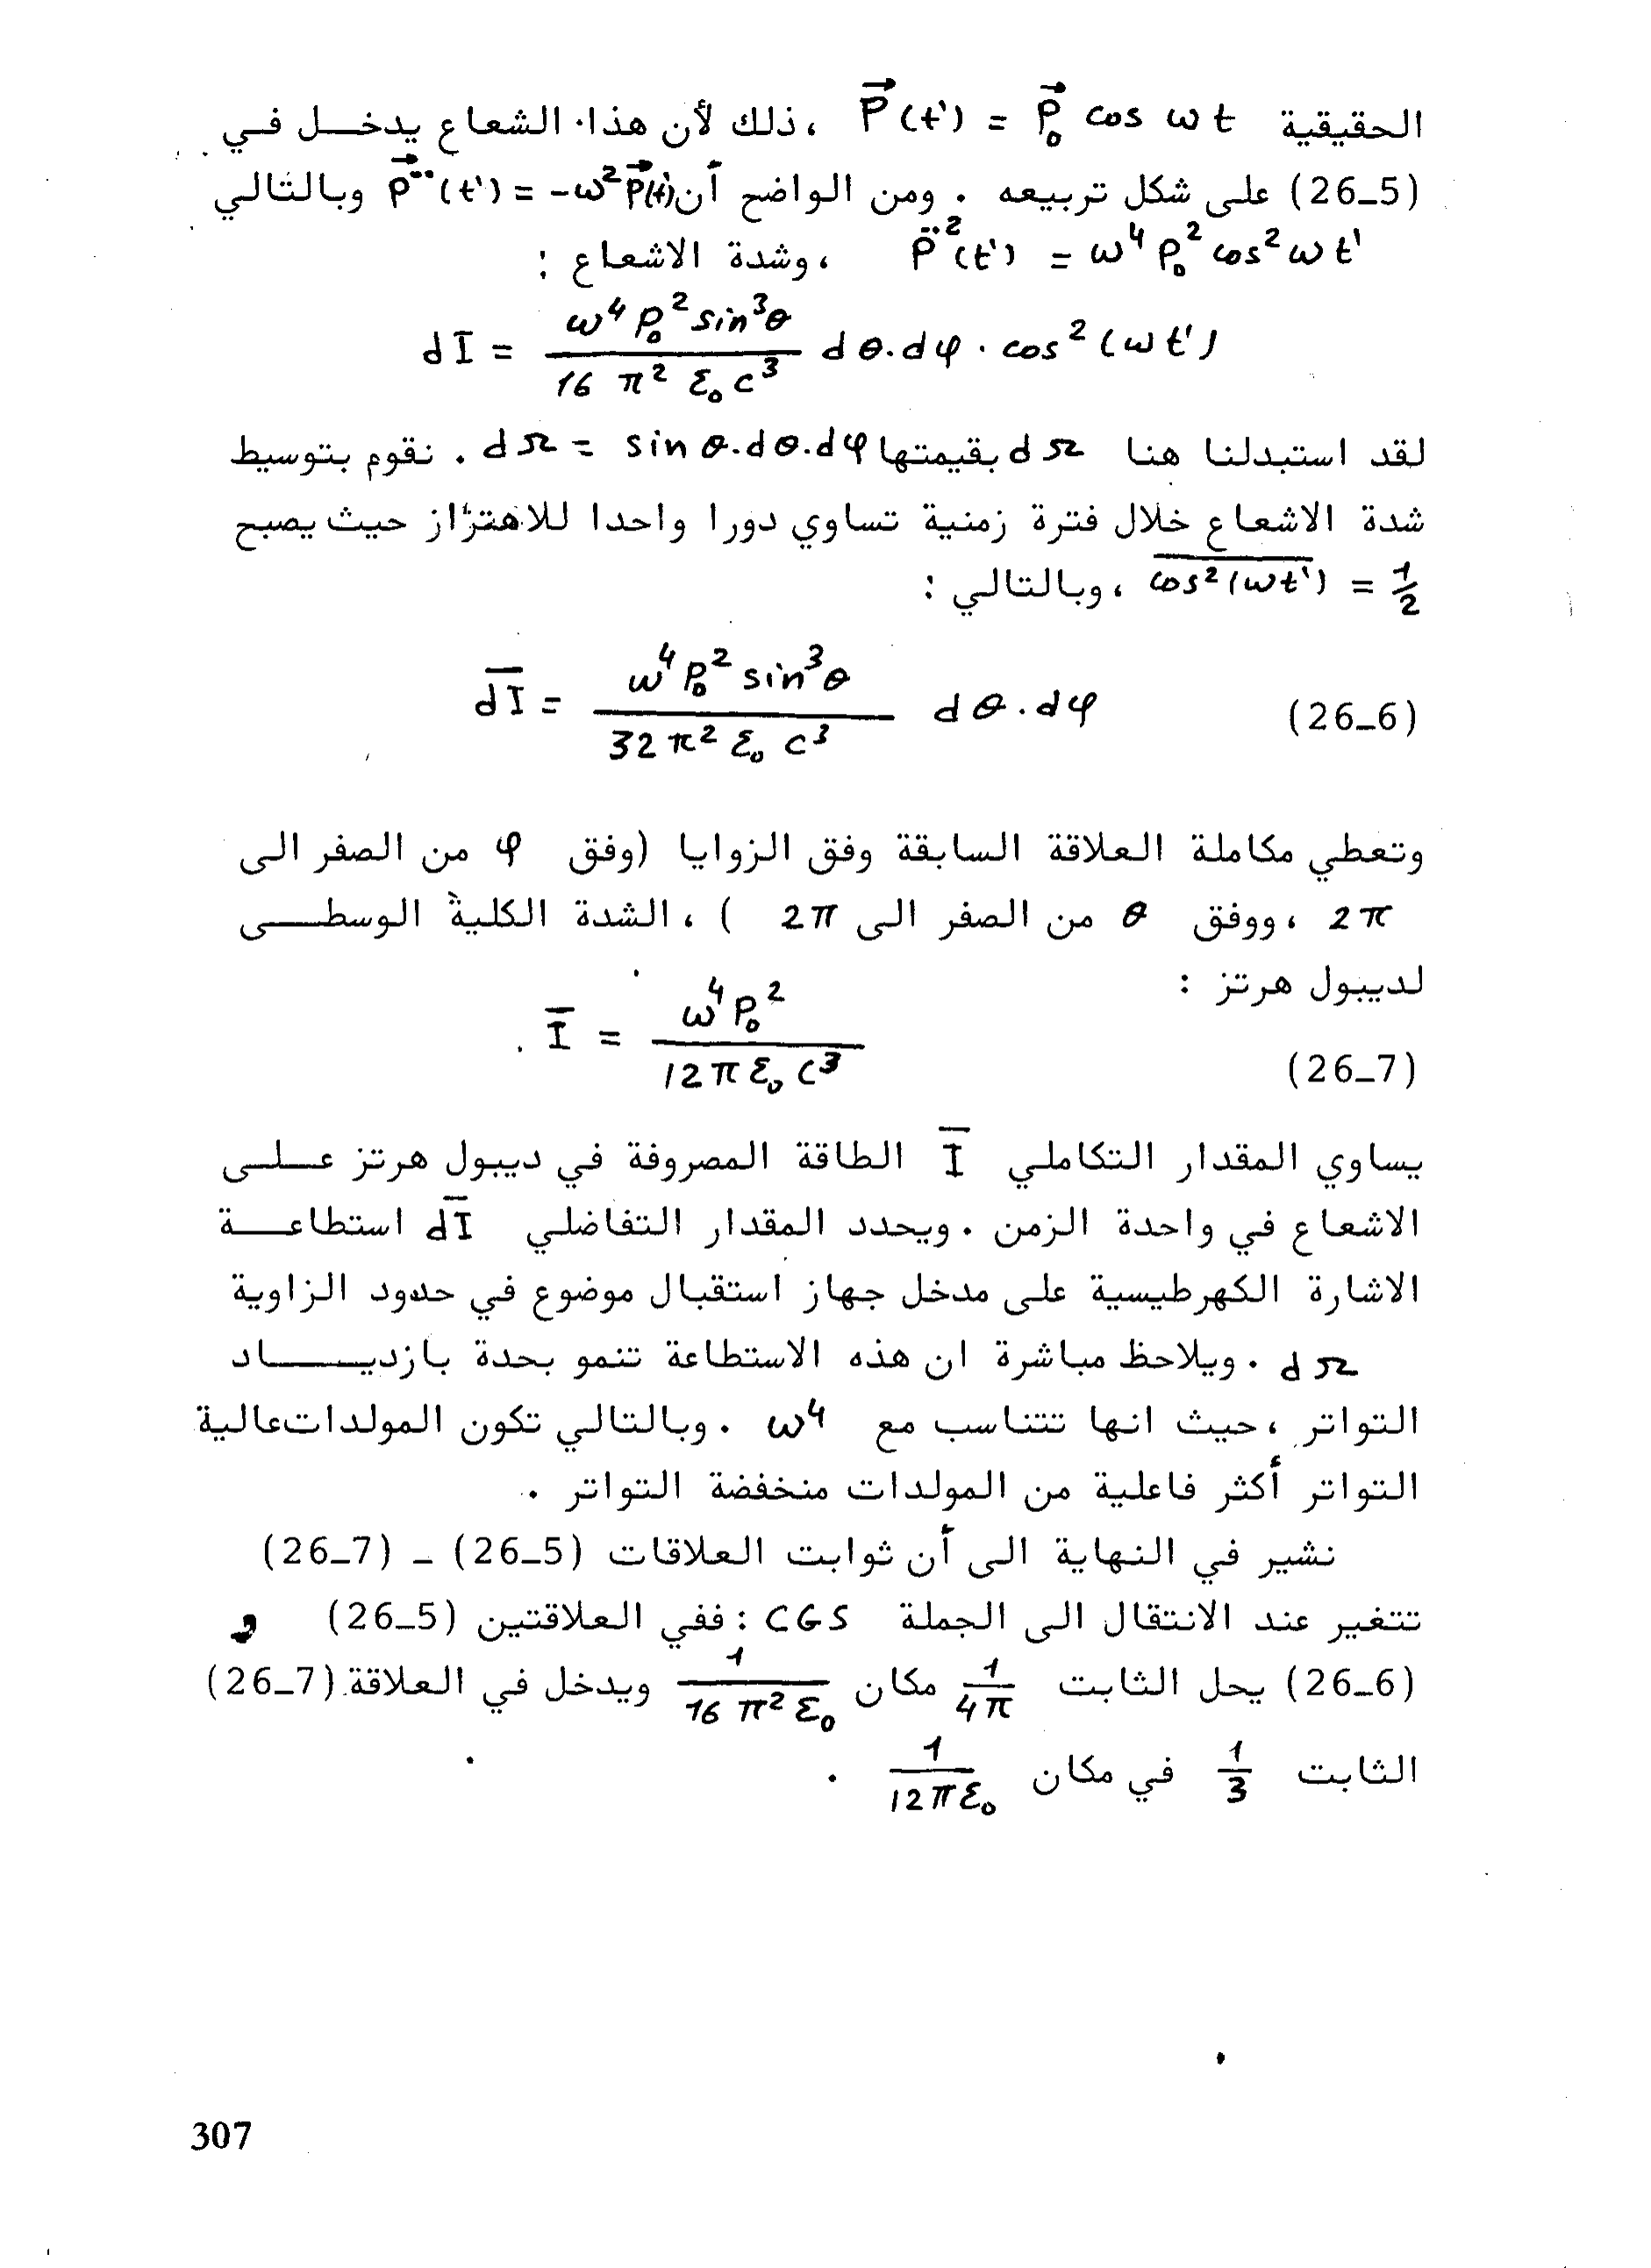 الحقيقية P⃗(t') = P⃗₀ cos ω t ، ذلك لأن هذا الشعاع يدخـــل فـي
(26_5) على شكل تربيعه . ومن الواضح أن P⃗¨(t') = -ω² P⃗(t') وبالتالي
P̈²(t') = ω⁴ P₀² cos² ω t' ، وشدة الاشعاع :
dI = (ω⁴ P₀² sin³θ / 16 π² ε₀ c³) dθ.dφ . cos²(ωt')
لقد استبدلنا هنا dΩ بقيمتها dΩ = sin θ.dθ.dφ . نقوم بتوسيط
شدة الاشعاع خلال فترة زمنية تساوي دورا واحدا للاهتزاز حيث يصبح
c̅o̅s̅²̅(̅ω̅t̅'̅)̅ = 1/2 ، وبالتالي :
d̅I̅ = (ω⁴ P₀² sin³θ / 32 π² ε₀ c³) dθ.dφ (26_6)
وتعطي مكاملة العلاقة السابقة وفق الزوايا (وفق φ من الصفر الى
2π ، ووفق θ من الصفر الى 2π ) ، الشدة الكلية الوسطـــى
لديبول هرتز :
I̅ = ω⁴ P₀² / 12 π ε₀ c³ (26_7)
يساوي المقدار التكاملي I̅ الطاقة المصروفة في ديبول هرتز عـلـى
الاشعاع في واحدة الزمن . ويحدد المقدار التفاضلي d̅I̅ استطاعـــة
الاشارة الكهرطيسية على مدخل جهاز استقبال موضوع في حدود الزاوية
dΩ . ويلاحظ مباشرة ان هذه الاستطاعة تنمو بحدة بازديـــــاد
التواتر ، حيث انها تتناسب مع ω⁴ . وبالتالي تكون المولدات عالية
التواتر أكثر فاعلية من المولدات منخفضة التواتر .
نشير في النهاية الى أن ثوابت العلاقات (26_5) _ (26_7)
تتغير عند الانتقال الى الجملة CGS : ففي العلاقتين (26_5) و
(26_6) يحل الثابت 1/4π مكان 1/16 π² ε₀ ويدخل في العلاقة (26_7)
الثابت 1/3 في مكان 1/12πε₀ .
307